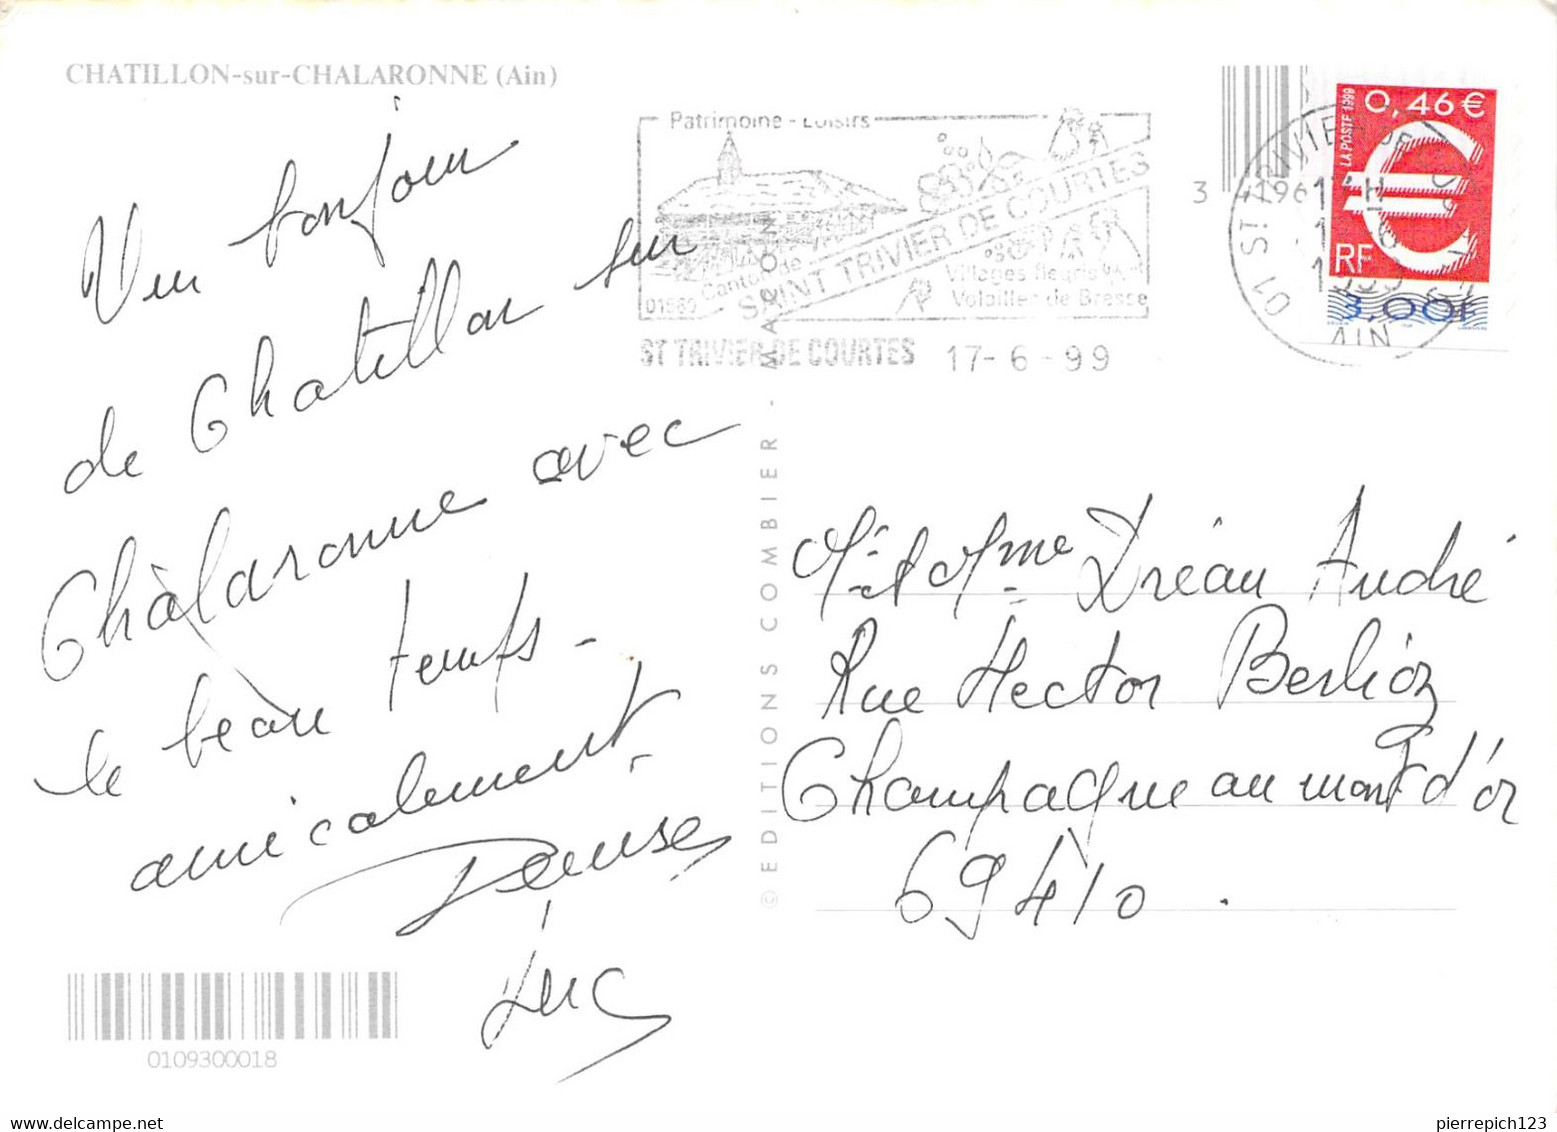 CHATILLON-sur-CHALARONNE (Ain)
Un bonjour
de Chatillon sur
Chàlaronne avec
le beàu temps -
amicalement
Denise
Luc
0109300018
Patrimoine - Loisirs
Canton de
SAINT TRIVIER DE COURTES
Villages fleuris
Volailles de Bresse
01560
ST TRIVIER DE COURTES 17-6-99
© EDITIONS COMBIER - MACON
3 4196
01 ST TRIVIER DE COURTES
AIN
LA POSTE 1999
0,46 €
RF
3,00F
Mr et Mme Dréau André
Rue Hector Berlioz
Champagne au mont d'or
69410.
pierrepich123